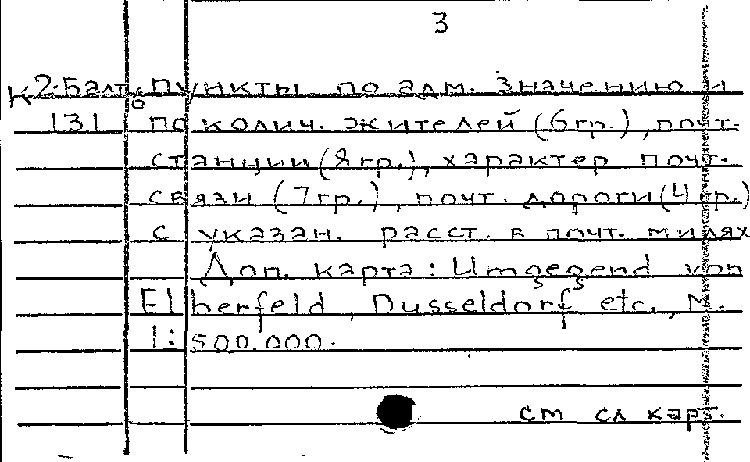 3
К2-Балт. пункты по адм. значению и
131 по колич. жителей (6 гр.), почт.
станции (8 гр.), характер почт.
связи (7 гр.), почт. дороги (4 гр.)
с указан. расст. в почт. милях
Доп. карта: Umgegend von
Elberfeld, Dusseldorf etc., М.
1:500.000.
см сл карт.